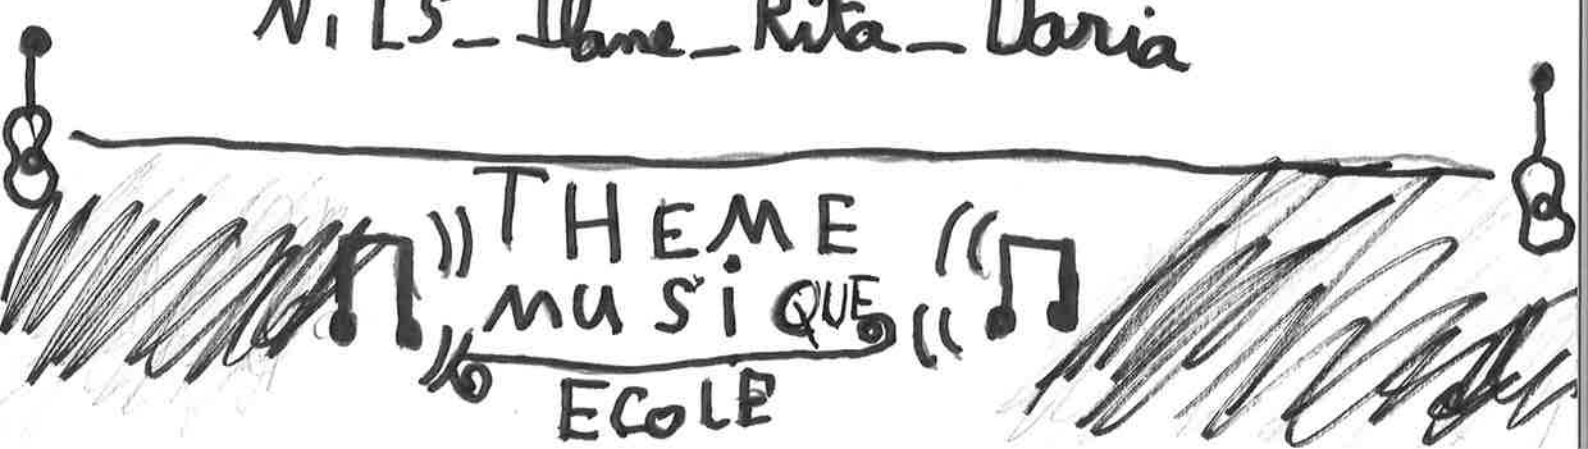 NiLS_Ilane_Rita_Daria
THEME
MUSiQUE
ECOLE